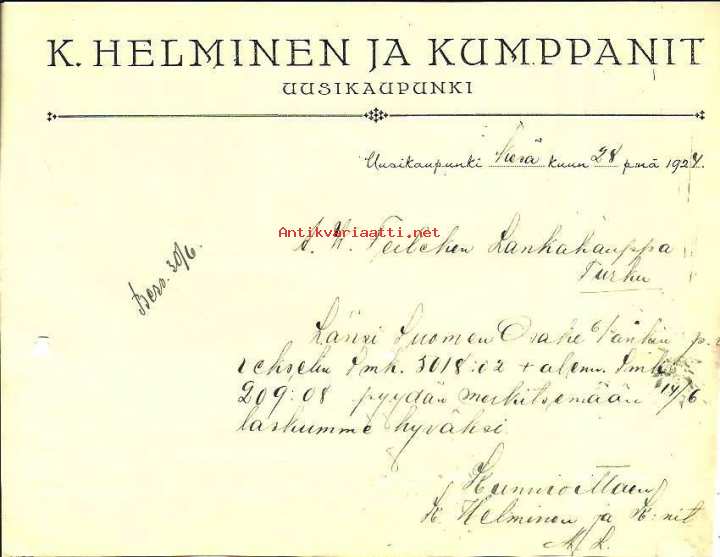 K. HELMINEN JA KUMPPANIT
UUSIKAUPUNKI
Uusikaupunki Kesä kuun 28 pnä 1924.
Antikvariaatti.net
Lankakauppa
Turku
30/6.
Länsi Suomen Osake Pankin p.
Smk. 3018:02 + alenn. Smk
209:08 pyydän merkitsemään 14/6
laskumme hyväksi.
Kunnioittaen
K. Helminen ja K:nit